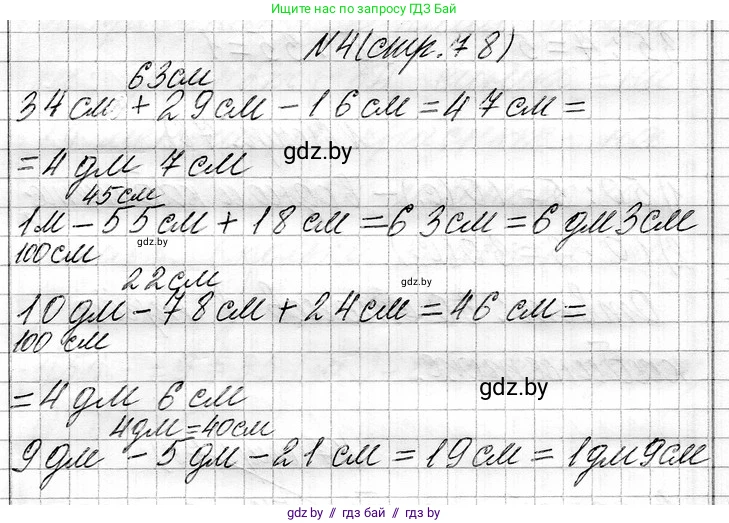 Ищите нас по запросу ГДЗ Бай
N4(стр.78)
63см
34см + 29см - 16см = 47см =
gdz.by
= 4 дм 7см
45см
1м - 55см + 18см = 63см = 6дм3см
gdz.by
100см
22см
gdz.by
10дм - 78см + 24см = 46см =
100 см
= 4дм 6см
gdz.by
4дм = 40см
9дм - 5дм - 21см = 19см = 1дм9см
gdz.by // гдз бай // гдз by